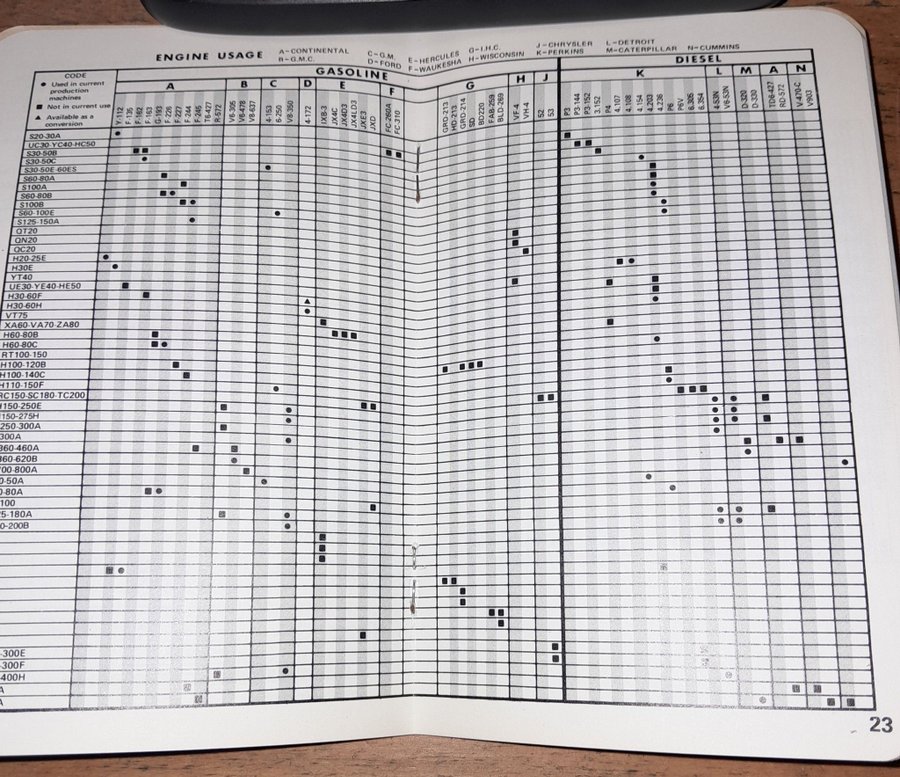 ENGINE USAGE
A-CONTINENTAL
B-G.M.C.
C-G.M.
D-FORD
E-HERCULES
F-WAUKESHA
G-I.H.C.
H-WISCONSIN
J-CHRYSLER
K-PERKINS
L-DETROIT
M-CATERPILLAR
N-CUMMINS
CODE
● Used in current
production
machines
■ Not in current use
▲ Available as a
conversion
GASOLINE
DIESEL
A B C D E F G H J K L M A N
Y-112 F-135 F-162 F-163 G-193 F-226 F-227 F-244 F-245 T6-427 R-572 V6-305 V6-478 V8-637 4-153 6-250 V8-350 4-172 JXB-3 JX4C JX4D3 JX4LD3 JXE3 JXD FC-260A FC-310 GRD-213 HD-213 GRD-214 SD BD220 FAB-259 BLD-269 VF-4 VH-4 52 53
P3 P3-144 P3-152 3.152 P4 4.107 4.108 4.154 4.203 P6 P6V 6.305 6.354 4-53N V6-53N D-320 D-330 TD6-427 RD-572 V-470-C V903
S20-30A
UC30-YC40-HC50
S30-50B
S30-50C
S30-50E-60ES
S60-80A
S100A
S60-80B
S100B
S60-100E
S125-150A
QT20
QN20
QC20
H20-25E
H30E
YT40
UE30-YE40-HE50
H30-60F
H30-60H
VT75
XA60-VA70-ZA80
H60-80B
H60-80C
RT100-150
H100-120B
H100-140C
H110-150F
RC150-SC180-TC200
H150-250E
150-275H
250-300A
300A
360-460A
360-620B
700-800A
0-50A
0-80A
100
5-180A
0-200B
-300E
-300F
-400H
A
A
23